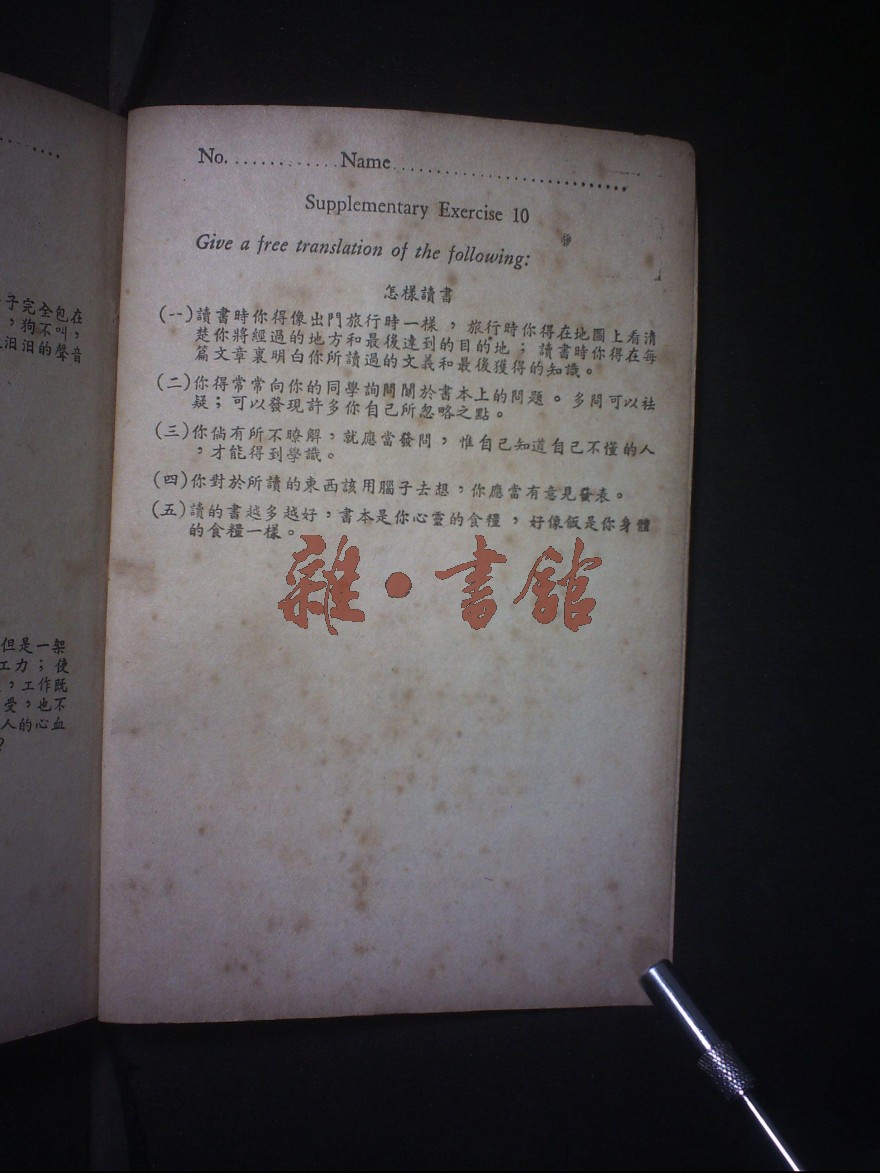 子完全包在
，狗不叫，
汩汩的聲音
但是一架
工力；使
，工作既
受，也不
人的心血
？
No. ............Name............................
Supplementary Exercise 10
Give a free translation of the following:
怎樣讀書
(一)讀書時你得像出門旅行時一樣，旅行時你得在地圖上看清
楚你將經過的地方和最後達到的目的地；讀書時你得在每
篇文章裏明白你所讀過的文義和最後獲得的知識。
(二)你得常常向你的同學詢問關於書本上的問題。多問可以祛
疑；可以發現許多你自己所忽略之點。
(三)你倘有所不瞭解，就應當發問，惟自己知道自己不懂的人
，才能得到學識。
(四)你對於所讀的東西該用腦子去想，你應當有意見發表。
(五)讀的書越多越好，書本是你心靈的食糧，好像飯是你身體
的食糧一樣。
雜·書舘